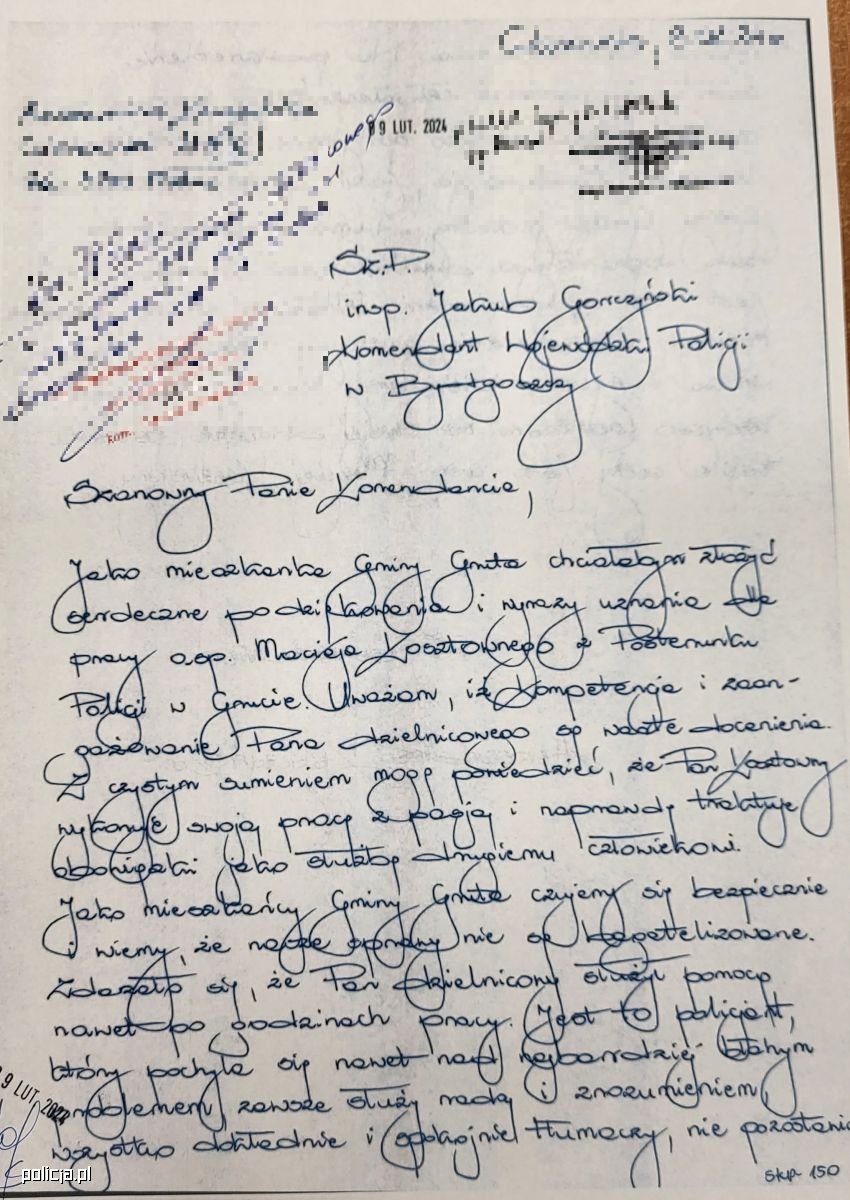 09 LUT. 2024
Sz.P.
insp. Jakub Gorczyński
Komendant Wojewódzki Policji
w Bydgoszczy
Szanowny Panie Komendancie,
Jako mieszkanka Gminy Gruta chciałabym złożyć
serdeczne podziękowania i wyrazy uznania dla
pracy asp. Macieja Kosztownego z Posterunku
Policji w Grucie. Uważam, iż kompetencje i zaan-
gażowanie Pana dzielnicowego są warte docenienia.
Z czystym sumieniem mogę powiedzieć, że Pan Kosztowny
wykonuje swoją pracę z pasją i naprawdę traktuje
obowiązki jako służbę drugiemu człowiekowi.
Jako mieszkańcy Gminy Gruta czujemy się bezpiecznie
i wiemy, że nasze sprawy nie są bagatelizowane.
Zdarzało się, że Pan dzielnicowy służył pomocą
nawet po godzinach pracy. Jest to policjant,
który pochyla się nawet nad najbardziej błahym
problemem, zawsze służy radą i zrozumieniem,
wszystko dokładnie i spokojnie tłumaczy, nie pozostawia
09 LUT. 2024
policja.pl
Skp 150